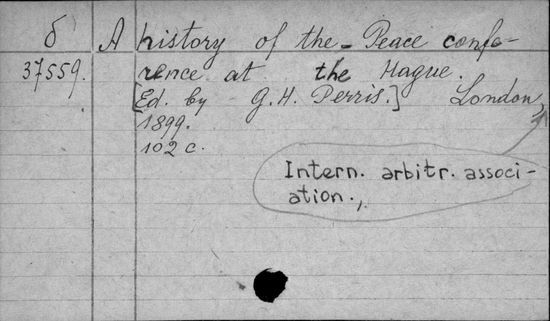 δ A history of the Peace confe-
37559. rence at the Hague.
[Ed. by G. H. Perris.] London,
1899.
102 c.
Intern. arbitr. associ-
ation.,